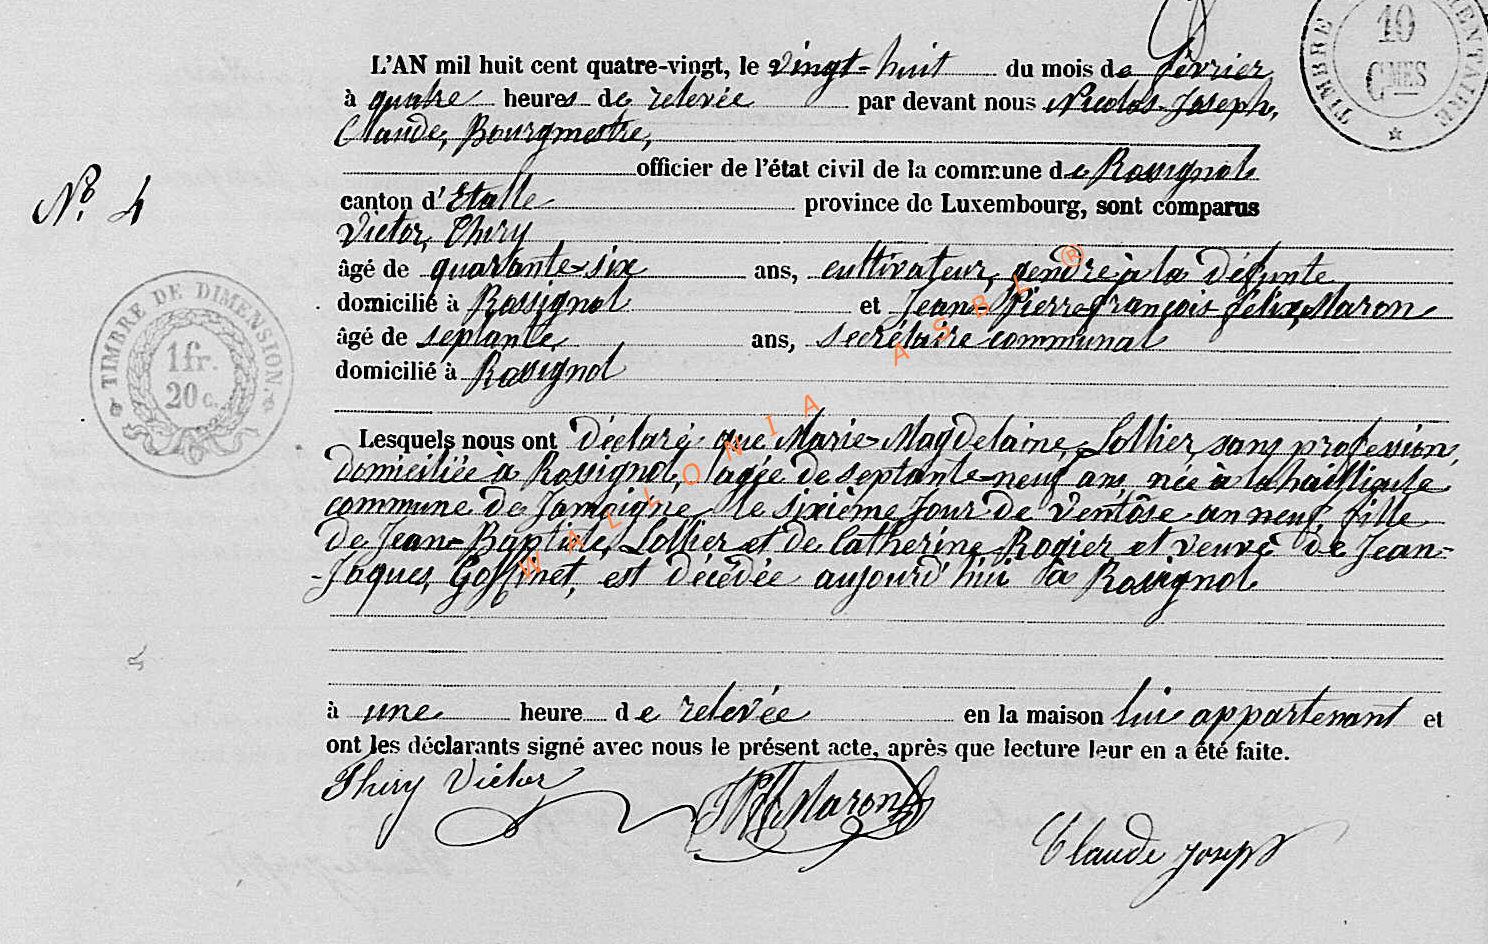 L'AN mil huit cent quatre-vingt, le vingt-huit du mois de février
à quatre heures de relevée par devant nous Nicolas-Joseph,
Claude, Bourgmestre,
officier de l'état civil de la commune de Rossignol
No. 4
canton d'Etalle province de Luxembourg, sont comparus
Victor, Thiry
âgé de quarante-six ans, cultivateur, gendre à la défunte
domicilié à Rossignol et Jean-Pierre-françois-félix, Maron
âgé de septante ans, secrétaire communal
domicilié à Rossignol
Lesquels nous ont déclaré que Marie-Magdelaine, Lollier, sans profession,
domiciliée à Rossignol, agée de septante-neuf ans, née à
commune de Jamoigne, le sixième jour de Ventôse an neuf, fille
de Jean-Baptiste, Lollier et de Catherine Rogier et veuve de Jean-
-Jaques, Goffinet, est décédée aujourd'hui à Rossignol
à une heure de relevée en la maison lui appartenant et
ont les déclarants signé avec nous le présent acte, après que lecture leur en a été faite.
Thiry Victor
Maron
Claude Joseph
TIMBRE DE DIMENSION.
1 fr.
20 c.
TIMBRE
10
CMES
WALLONIA ASBL ®